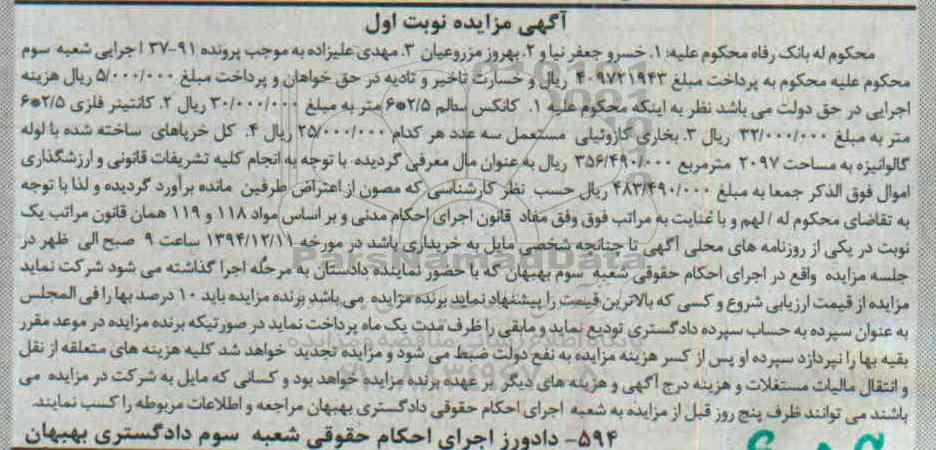 آگهی مزایده نوبت اول
محکوم له بانک رفاه محکوم علیه: ۱. خسرو جعفر نیا و ۲. بهروز مزروعیان ۳. مهدی علیزاده به موجب پرونده ۹۱-۳۷ اجرایی شعبه سوم
محکوم علیه محکوم به پرداخت مبلغ ۴۰۹۷۲۱۹۴۳ ریال و خسارت تاخیر و تادیه در حق خواهان و پرداخت مبلغ ۵/۰۰۰/۰۰۰ ریال هزینه
اجرایی در حق دولت می باشد نظر به اینکه محکوم علیه ۱. کانکس سالم ۲/۵*۶ متر به مبلغ ۳۰/۰۰۰/۰۰۰ ریال ۲. کانتینر فلزی ۲/۵*۶
متر به مبلغ ۳۲/۰۰۰/۰۰۰ ریال ۳. بخاری گازوئیلی مستعمل سه عدد هر کدام ۲۵/۰۰۰/۰۰۰ ریال ۴. کل خرپاهای ساخته شده با لوله
گالوانیزه به مساحت ۲۰۹۷ مترمربع ۳۵۶/۴۹۰/۰۰۰ ریال به عنوان مال معرفی گردیده با توجه به انجام کلیه تشریفات قانونی و ارزشگذاری
اموال فوق الذکر جمعا به مبلغ ۴۸۳/۴۹۰/۰۰۰ ریال حسب نظر کارشناسی که مصون از اعتراض طرفین مانده برآورد گردیده و لذا با توجه
به تقاضای محکوم له / لهم و با عنایت به مراتب فوق وفق مفاد قانون اجرای احکام مدنی و بر اساس مواد ۱۱۸ و ۱۱۹ همان قانون مراتب یک
نوبت در یکی از روزنامه های محلی آگهی تا چنانچه شخصی مایل به خریداری باشد در مورخه ۱۳۹۴/۱۲/۱۱ ساعت ۹ صبح الی ظهر در
جلسه مزایده واقع در اجرای احکام حقوقی شعبه سوم بهبهان که با حضور نماینده دادستان به مرحله اجرا گذاشته می شود شرکت نماید
مزایده از قیمت ارزیابی شروع و کسی که بالاترین قیمت را پیشنهاد نماید برنده مزایده می باشد برنده مزایده باید ۱۰ درصد بها را فی المجلس
به عنوان سپرده به حساب سپرده دادگستری تودیع نماید و مابقی را ظرف مدت یک ماه پرداخت نماید در صورتیکه برنده مزایده در موعد مقرر
بقیه بها را نپردازد سپرده او پس از کسر هزینه مزایده به نفع دولت ضبط می شود و مزایده تجدید خواهد شد کلیه هزینه های متعلقه از نقل
و انتقال مالیات مستغلات و هزینه درج آگهی و هزینه های دیگر بر عهده برنده مزایده خواهد بود و کسانی که مایل به شرکت در مزایده می
باشند می توانند ظرف پنج روز قبل از مزایده به شعبه اجرای احکام حقوقی دادگستری بهبهان مراجعه و اطلاعات مربوطه را کسب نمایند.
۵۹۴- دادورز اجرای احکام حقوقی شعبه سوم دادگستری بهبهان
ParsNamadData